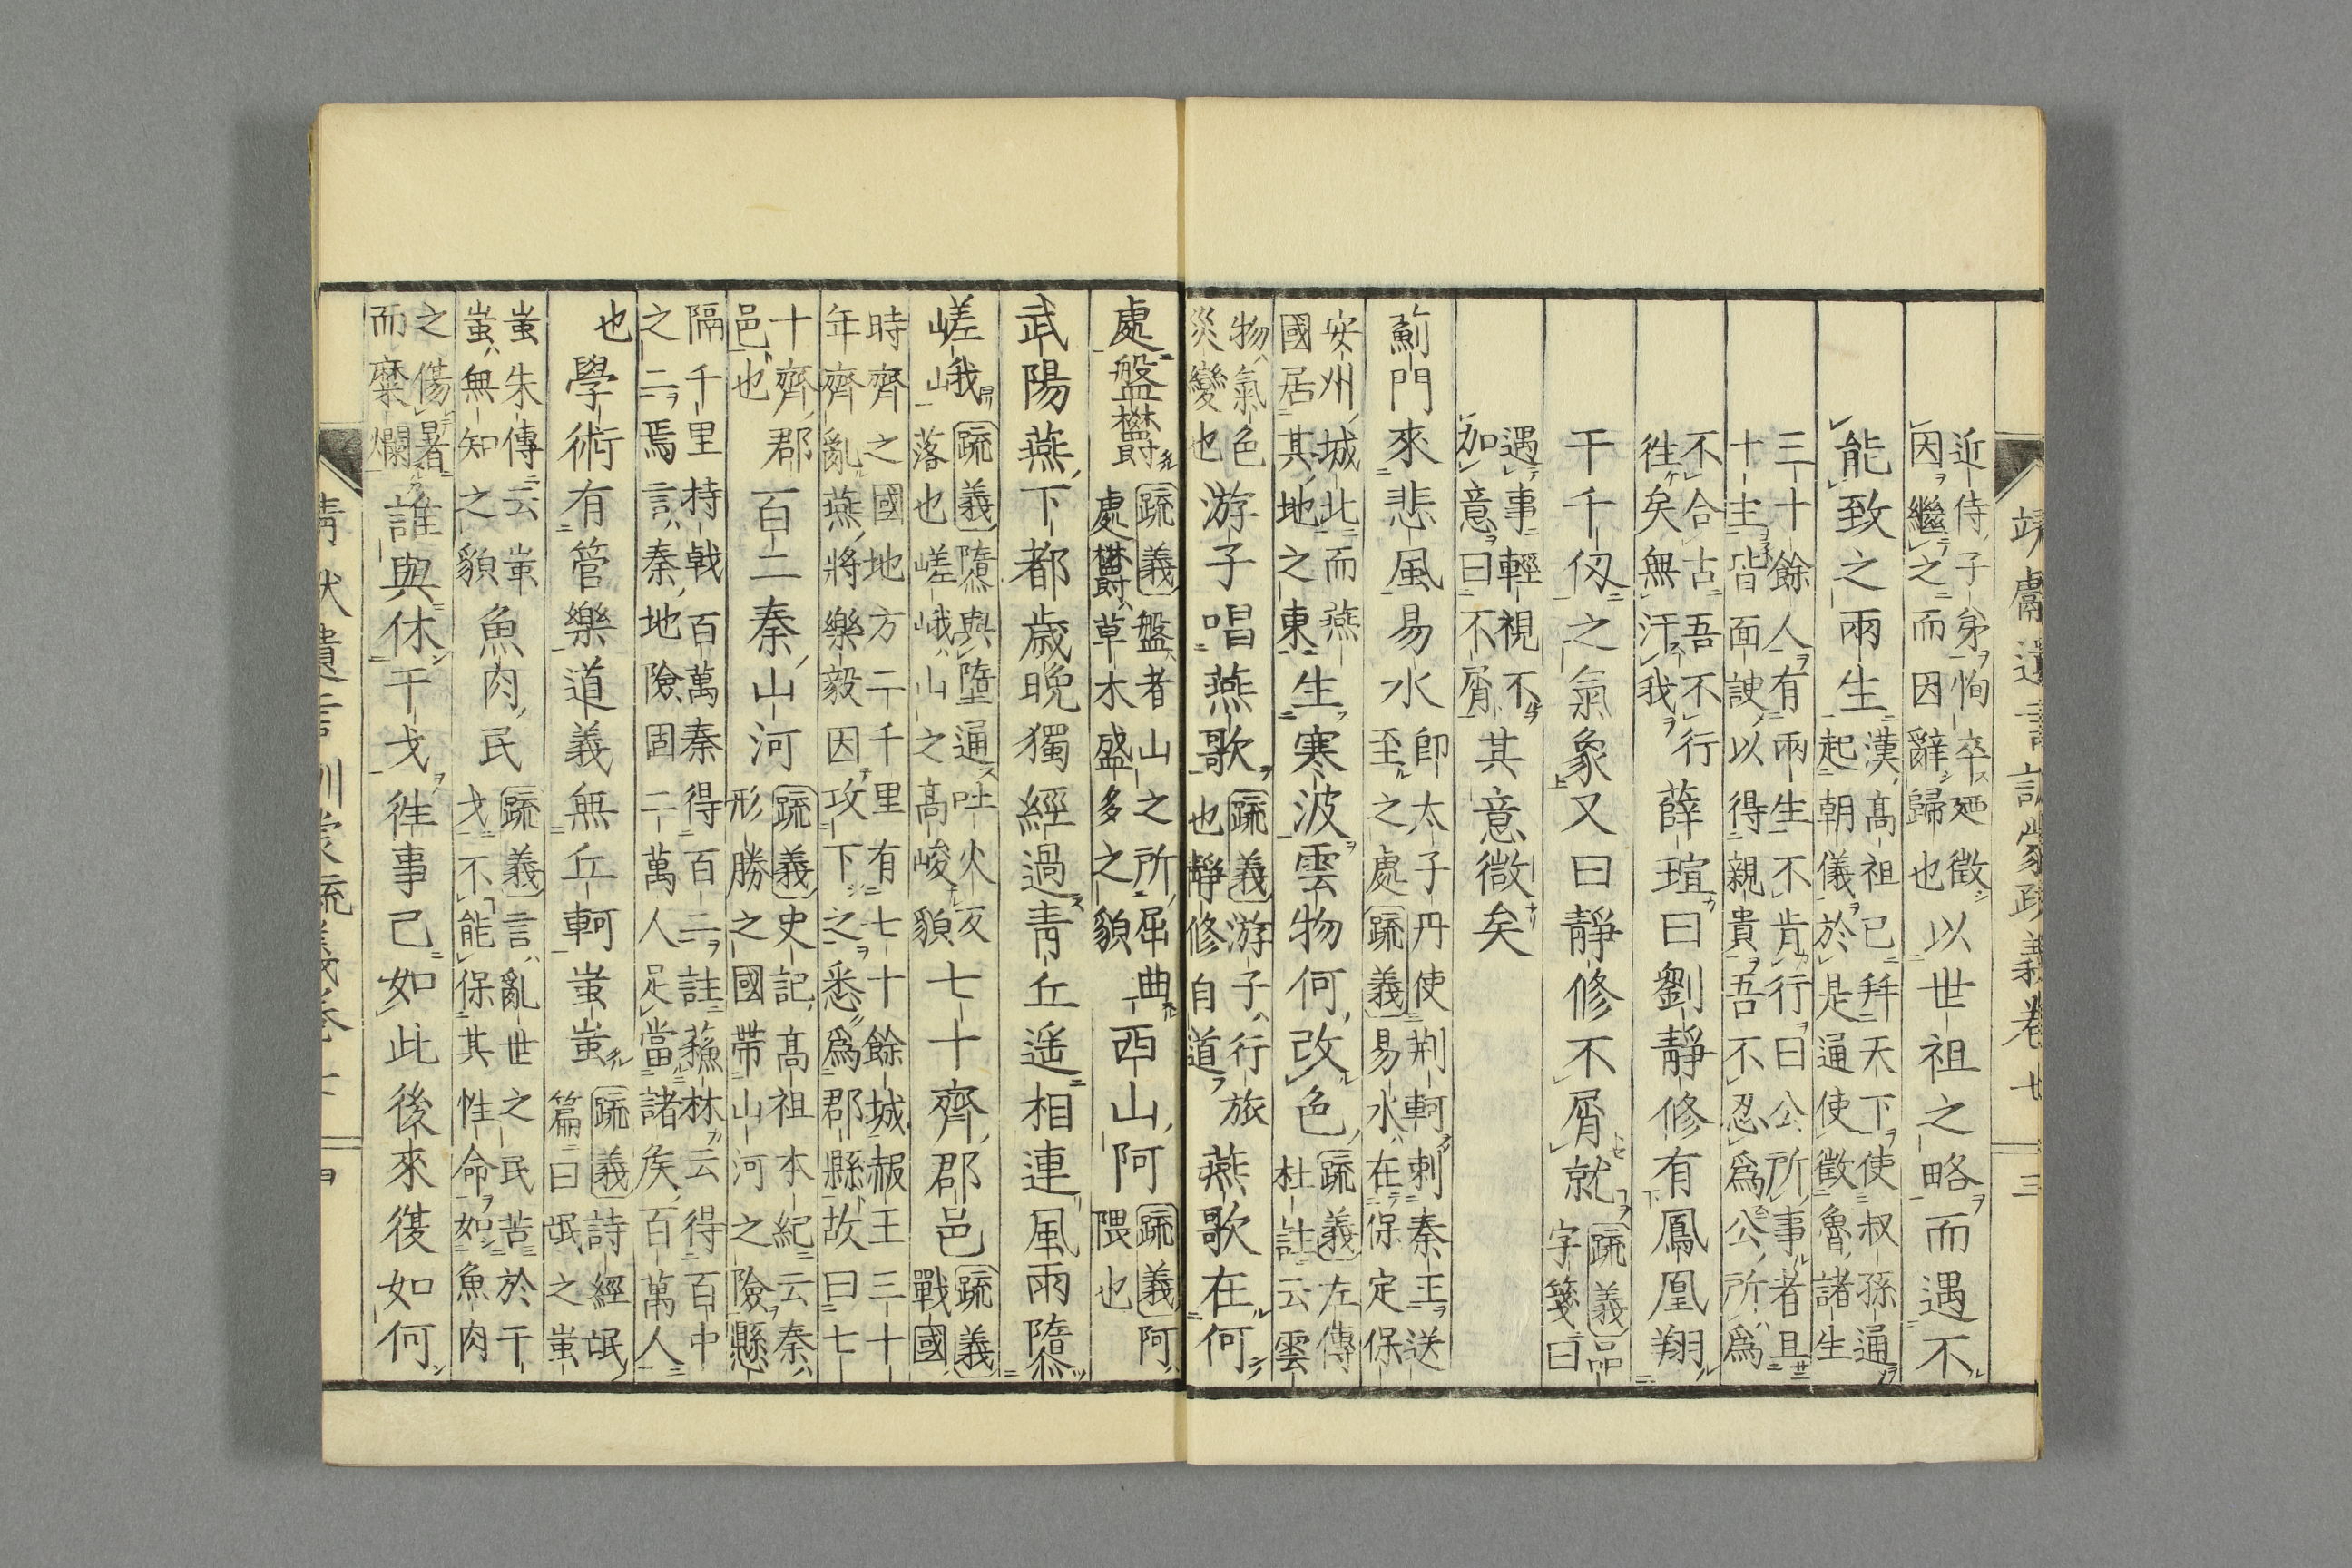 靖獻遺言訓蒙疏義卷七　三
近侍子弟恂卒廼徵
因繼之而因辭歸也
以世祖之略而遇不
能致之兩生
漢高祖已拜天下使叔孫通
起朝儀於是通使徵魯諸生
三十餘人有兩生不肯行曰公所事者且
十主皆面諛以得親貴吾不忍爲公所爲
不合古吾不行
徃矣無汙我
薛瑄曰劉靜修有鳳凰翔
干千仭之氣象又曰靜修不屑就
疏義品
字箋曰
遇事輕視不
加意曰不屑
其意微矣
薊門來悲風易水
卽太子丹使荆軻刺秦王送
至之處疏義易水在保定保
安州城北而燕
國居其地之東
生寒波雲物何改色
疏義左傳
杜註云雲
物氣色
災變也
游子唱燕歌
疏義游子行旅
也靜修自道
燕歌在何
處盤欝
疏義盤者山之所屈曲
處欝草木盛多之貌
西山阿
疏義阿
隈也
武陽燕下都歳晩獨經過青丘遥相連風雨隳
嵯峨
疏義隳與墮通吐火反
落也嵯峨山之高峻貌
七十齊郡邑
疏義
戰國
時齊之國地方二千里有七十餘城赧王三十
年齊亂燕將樂毅因攻下之悉爲郡縣故曰七
十齊郡
邑也
百二秦山河
疏義史記高祖本紀云秦
形勝之國帶山河之險懸
隔千里持戟百萬秦得百二註蘓林云得百中
之二焉言秦地險固二萬人足當諸矦百萬人
也
學術有管樂道義無丘軻蚩蚩
疏義詩經氓
篇曰氓之蚩
蚩朱傳云蚩
蚩無知之貌
魚肉民
疏義言亂世之民苦於干
戈不能保其性命如魚肉
之傷暑
而糜爛
誰與休干戈徃事已如此後來復如何